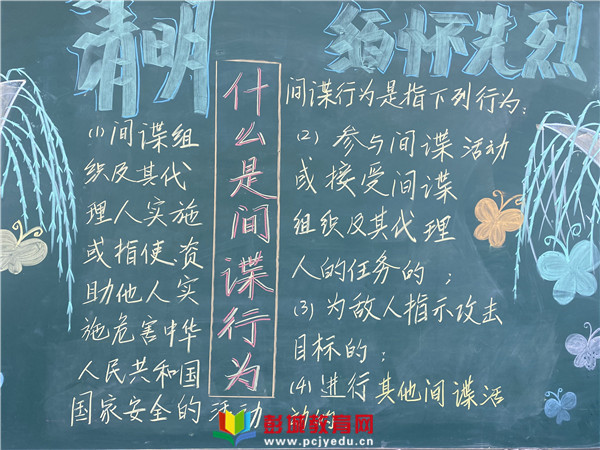 清明 缅怀先烈
什么是间谍行为
间谍行为是指下列行为:
(1)间谍组
织及其代
理人实施
或指使、资
助他人实
施危害中华
人民共和国
国家安全的活动
(2)参与间谍活动
或接受间谍
组织及其代理
人的任务的;
(3)为敌人指示攻击
目标的;
(4)进行其他间谍活
动的
彭城教育网
www.pcjyedu.cn